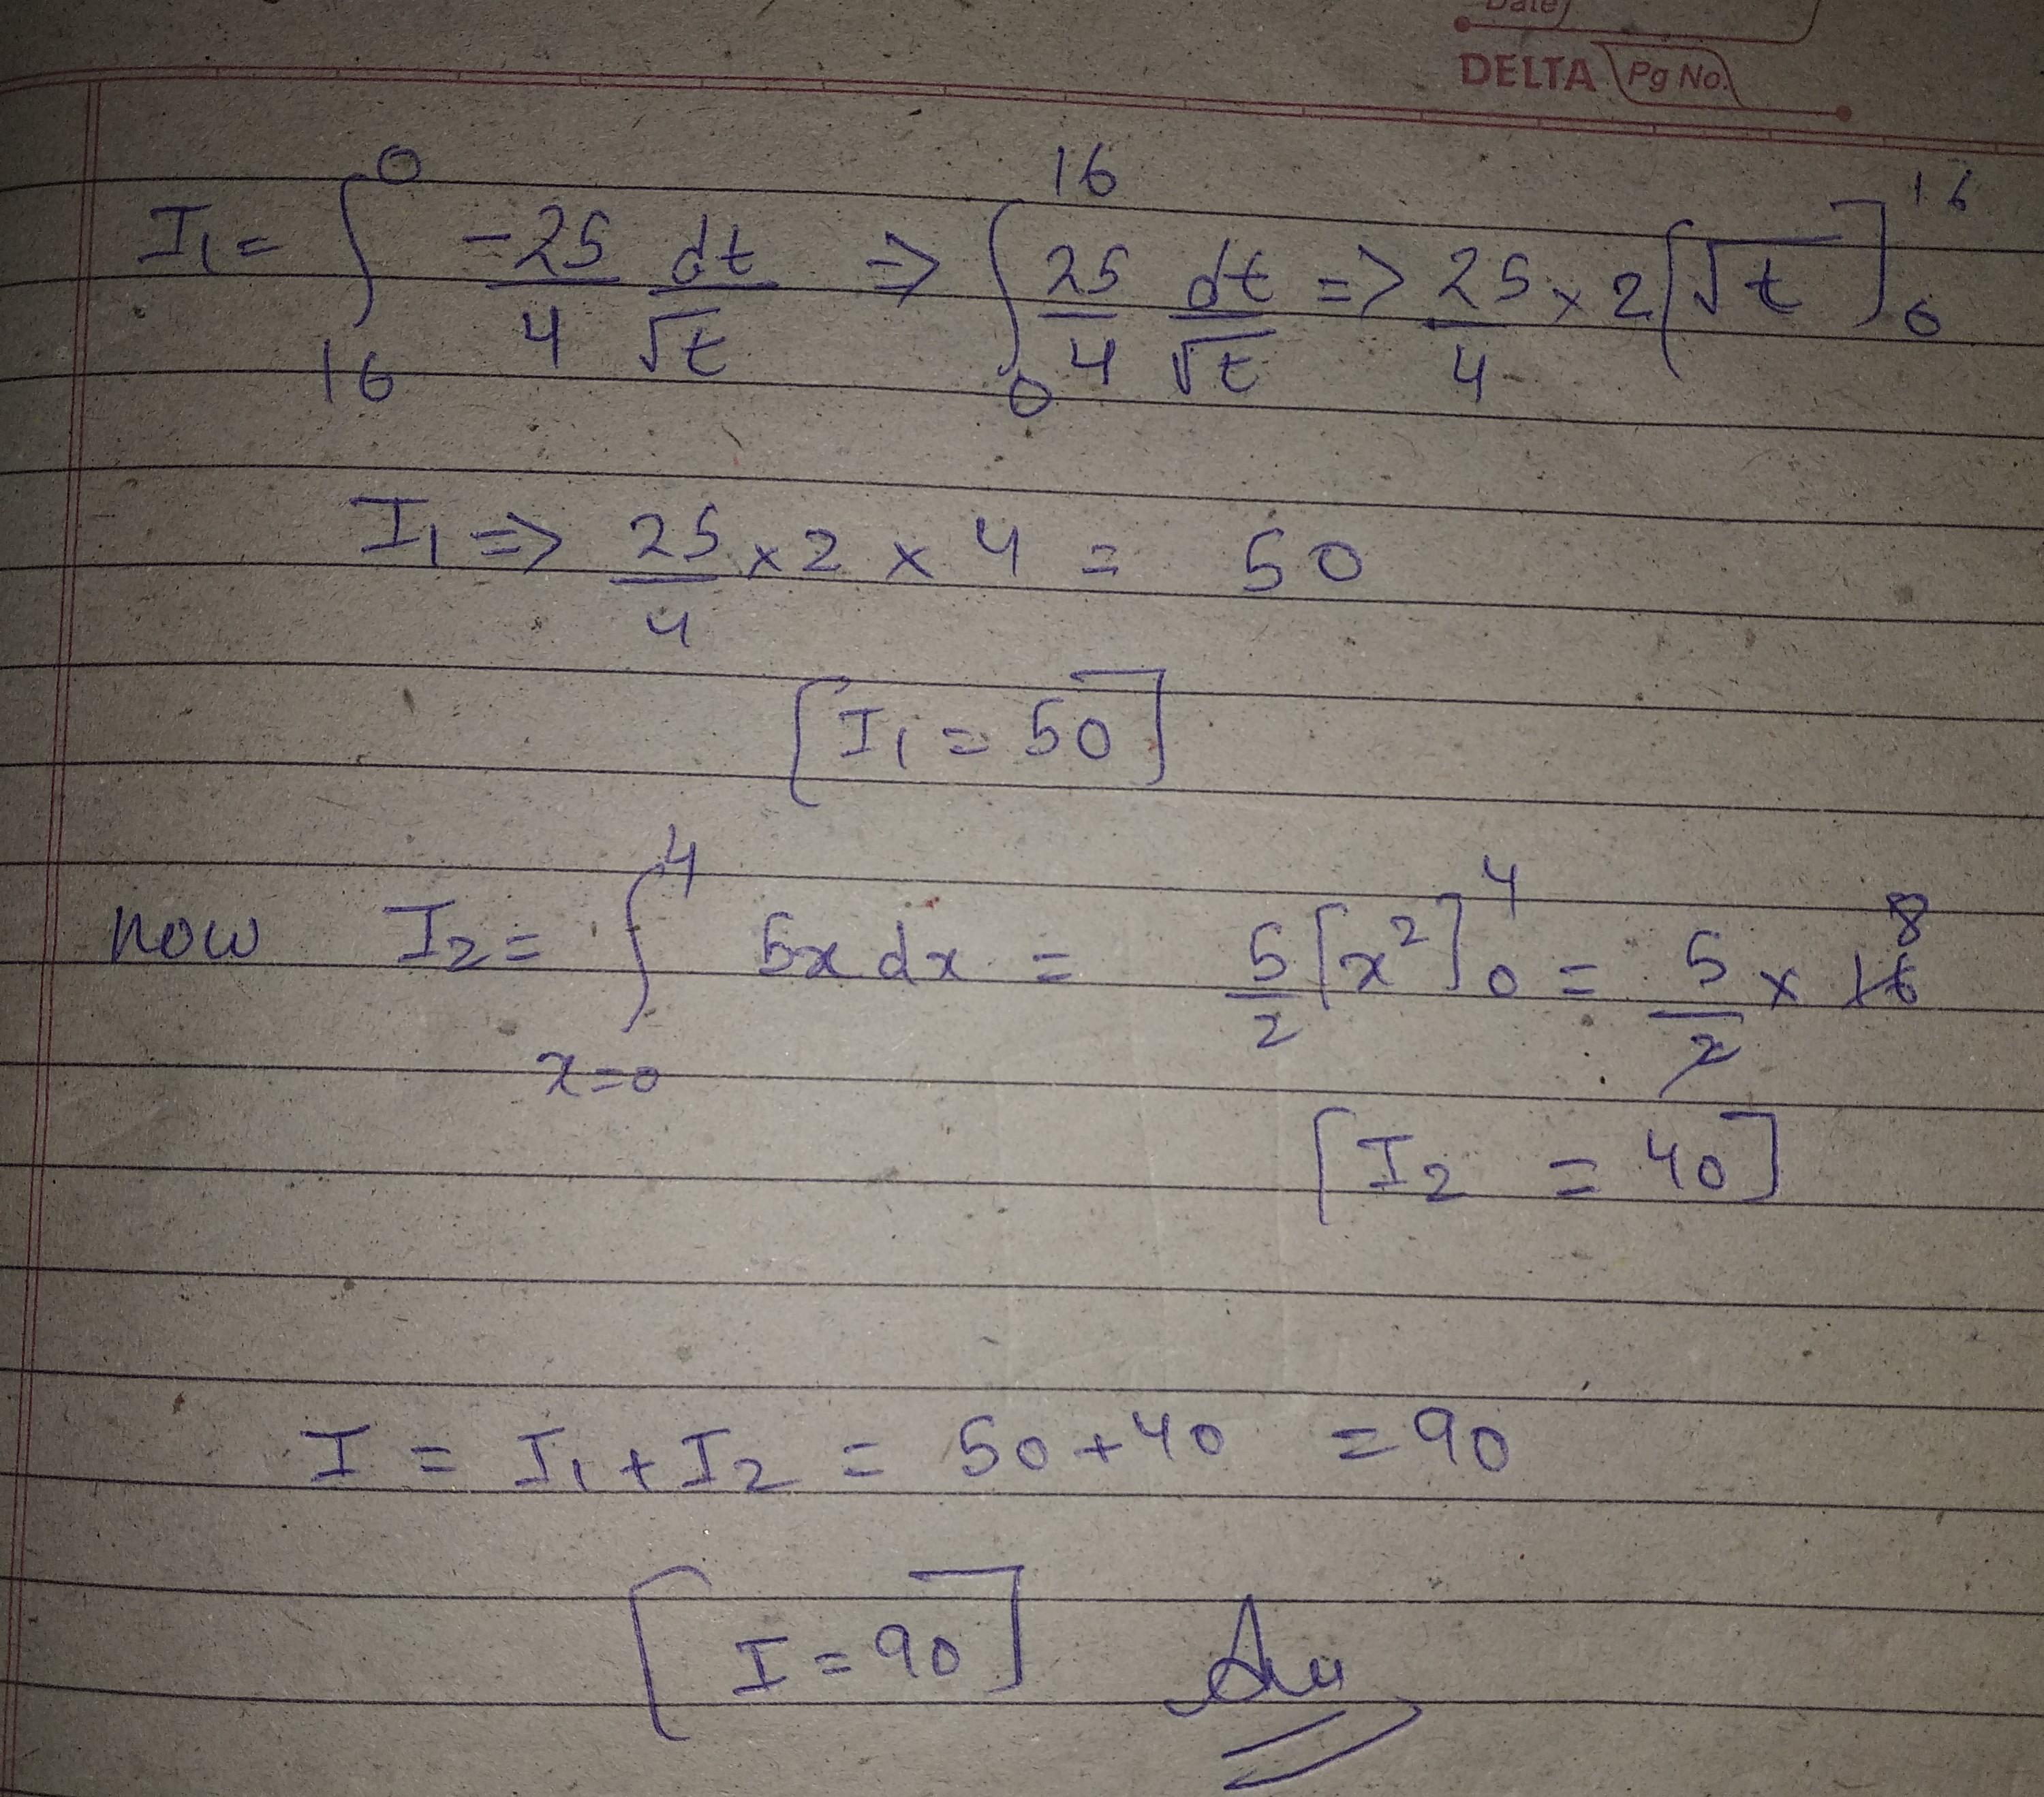 Date
DELTA Pg No.
I₁ = ∫₁₆⁰ -25/4 dt/√t => ∫₀¹⁶ 25/4 dt/√t => 25/4 × 2 [√t]₀¹⁶
I₁ => 25/4 × 2 × 4 = 50
[I₁ = 50]
now I₂ = ∫ₓ₌₀⁴ 5x dx = 5/2 [x²]₀⁴ = 5/2 × 16 8
[I₂ = 40]
I = I₁ + I₂ = 50 + 40 = 90
[I = 90] Ans